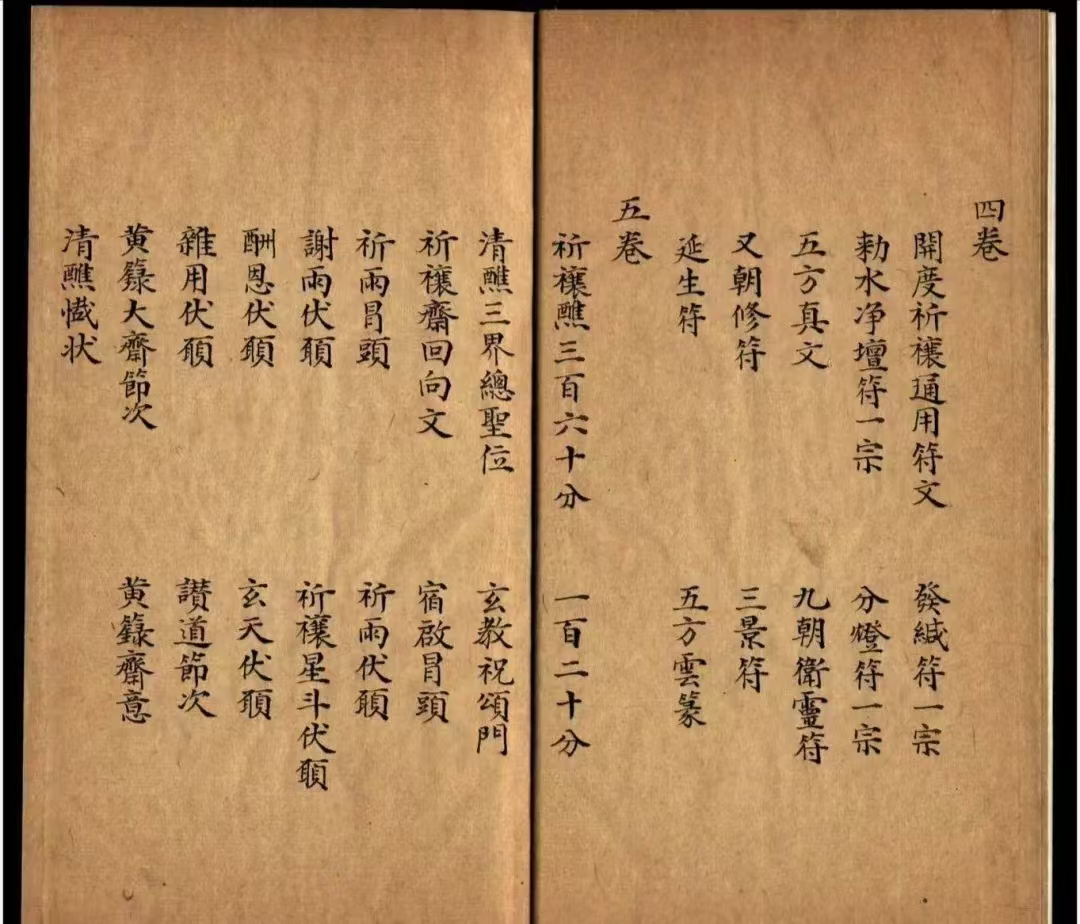 四卷
開度祈禳通用符文　發緘符一宗
勅水净壇符一宗　分燈符一宗
五方真文　九朝衛靈符
又朝修符　三景符
延生符　五方雲篆
五卷
祈禳醮三百六十分　一百二十分
清醮三界總聖位　玄教祝頌門
祈禳齋回向文　宿啟冒頭
祈雨冒頭　祈雨伏願
謝雨伏願　祈禳星斗伏願
酬恩伏願　玄天伏願
雜用伏願　讃道節次
黄籙大齋節次　黄籙齋意
清醮懴状